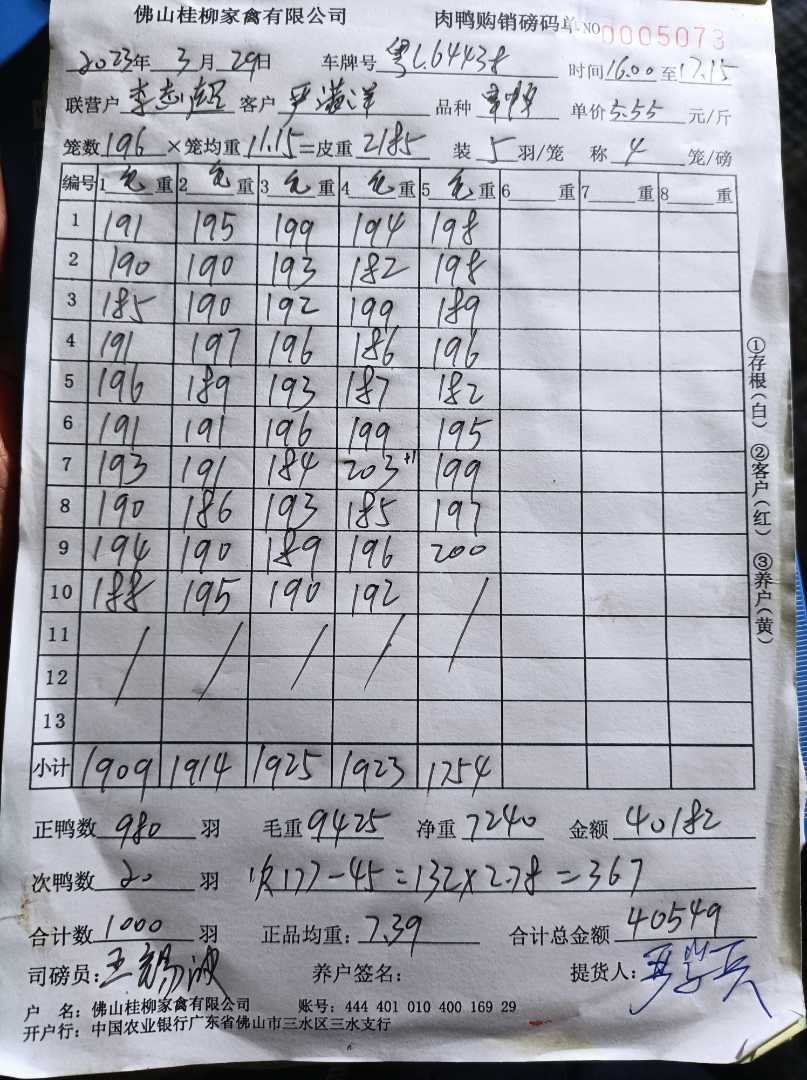 佛山桂柳家禽有限公司 肉鸭购销磅码单 NO 0005073
2023年 3月 29日 车牌号 粤L64438 时间 16.00 至 17.15
联营户 李志超 客户 严满洋 品种 单价 5.55 元/斤
笼数 196 ×笼均重 11.15 =皮重 2185 装 5 羽/笼 称 4 笼/磅
编号 1 毛 重 2 毛 重 3 毛 重 4 毛 重 5 毛 重 6 重 7 重 8 重
1 191 195 199 194 198
2 190 190 193 182 198
3 185 190 192 199 189
4 191 197 196 186 196
5 196 189 193 187 182
6 191 191 196 199 195
7 193 191 184 203 +1 199
8 190 186 193 185 197
9 194 190 189 196 200
10 188 195 190 192 /
11 / / / /
12
13
小计 1909 1914 1925 1923 1754
正鸭数 980 羽 毛重 9425 净重 7240 金额 40182
次鸭数 20 羽 次177-45=132×2.78=367
合计数 1000 羽 正品均重: 7.39 合计总金额 40549
司磅员: 王锡波 养户签名: 提货人:
户 名: 佛山桂柳家禽有限公司 账号: 444 401 010 400 169 29
开户行: 中国农业银行广东省佛山市三水区三水支行
①存根(白) ②客户(红) ③养户(黄)